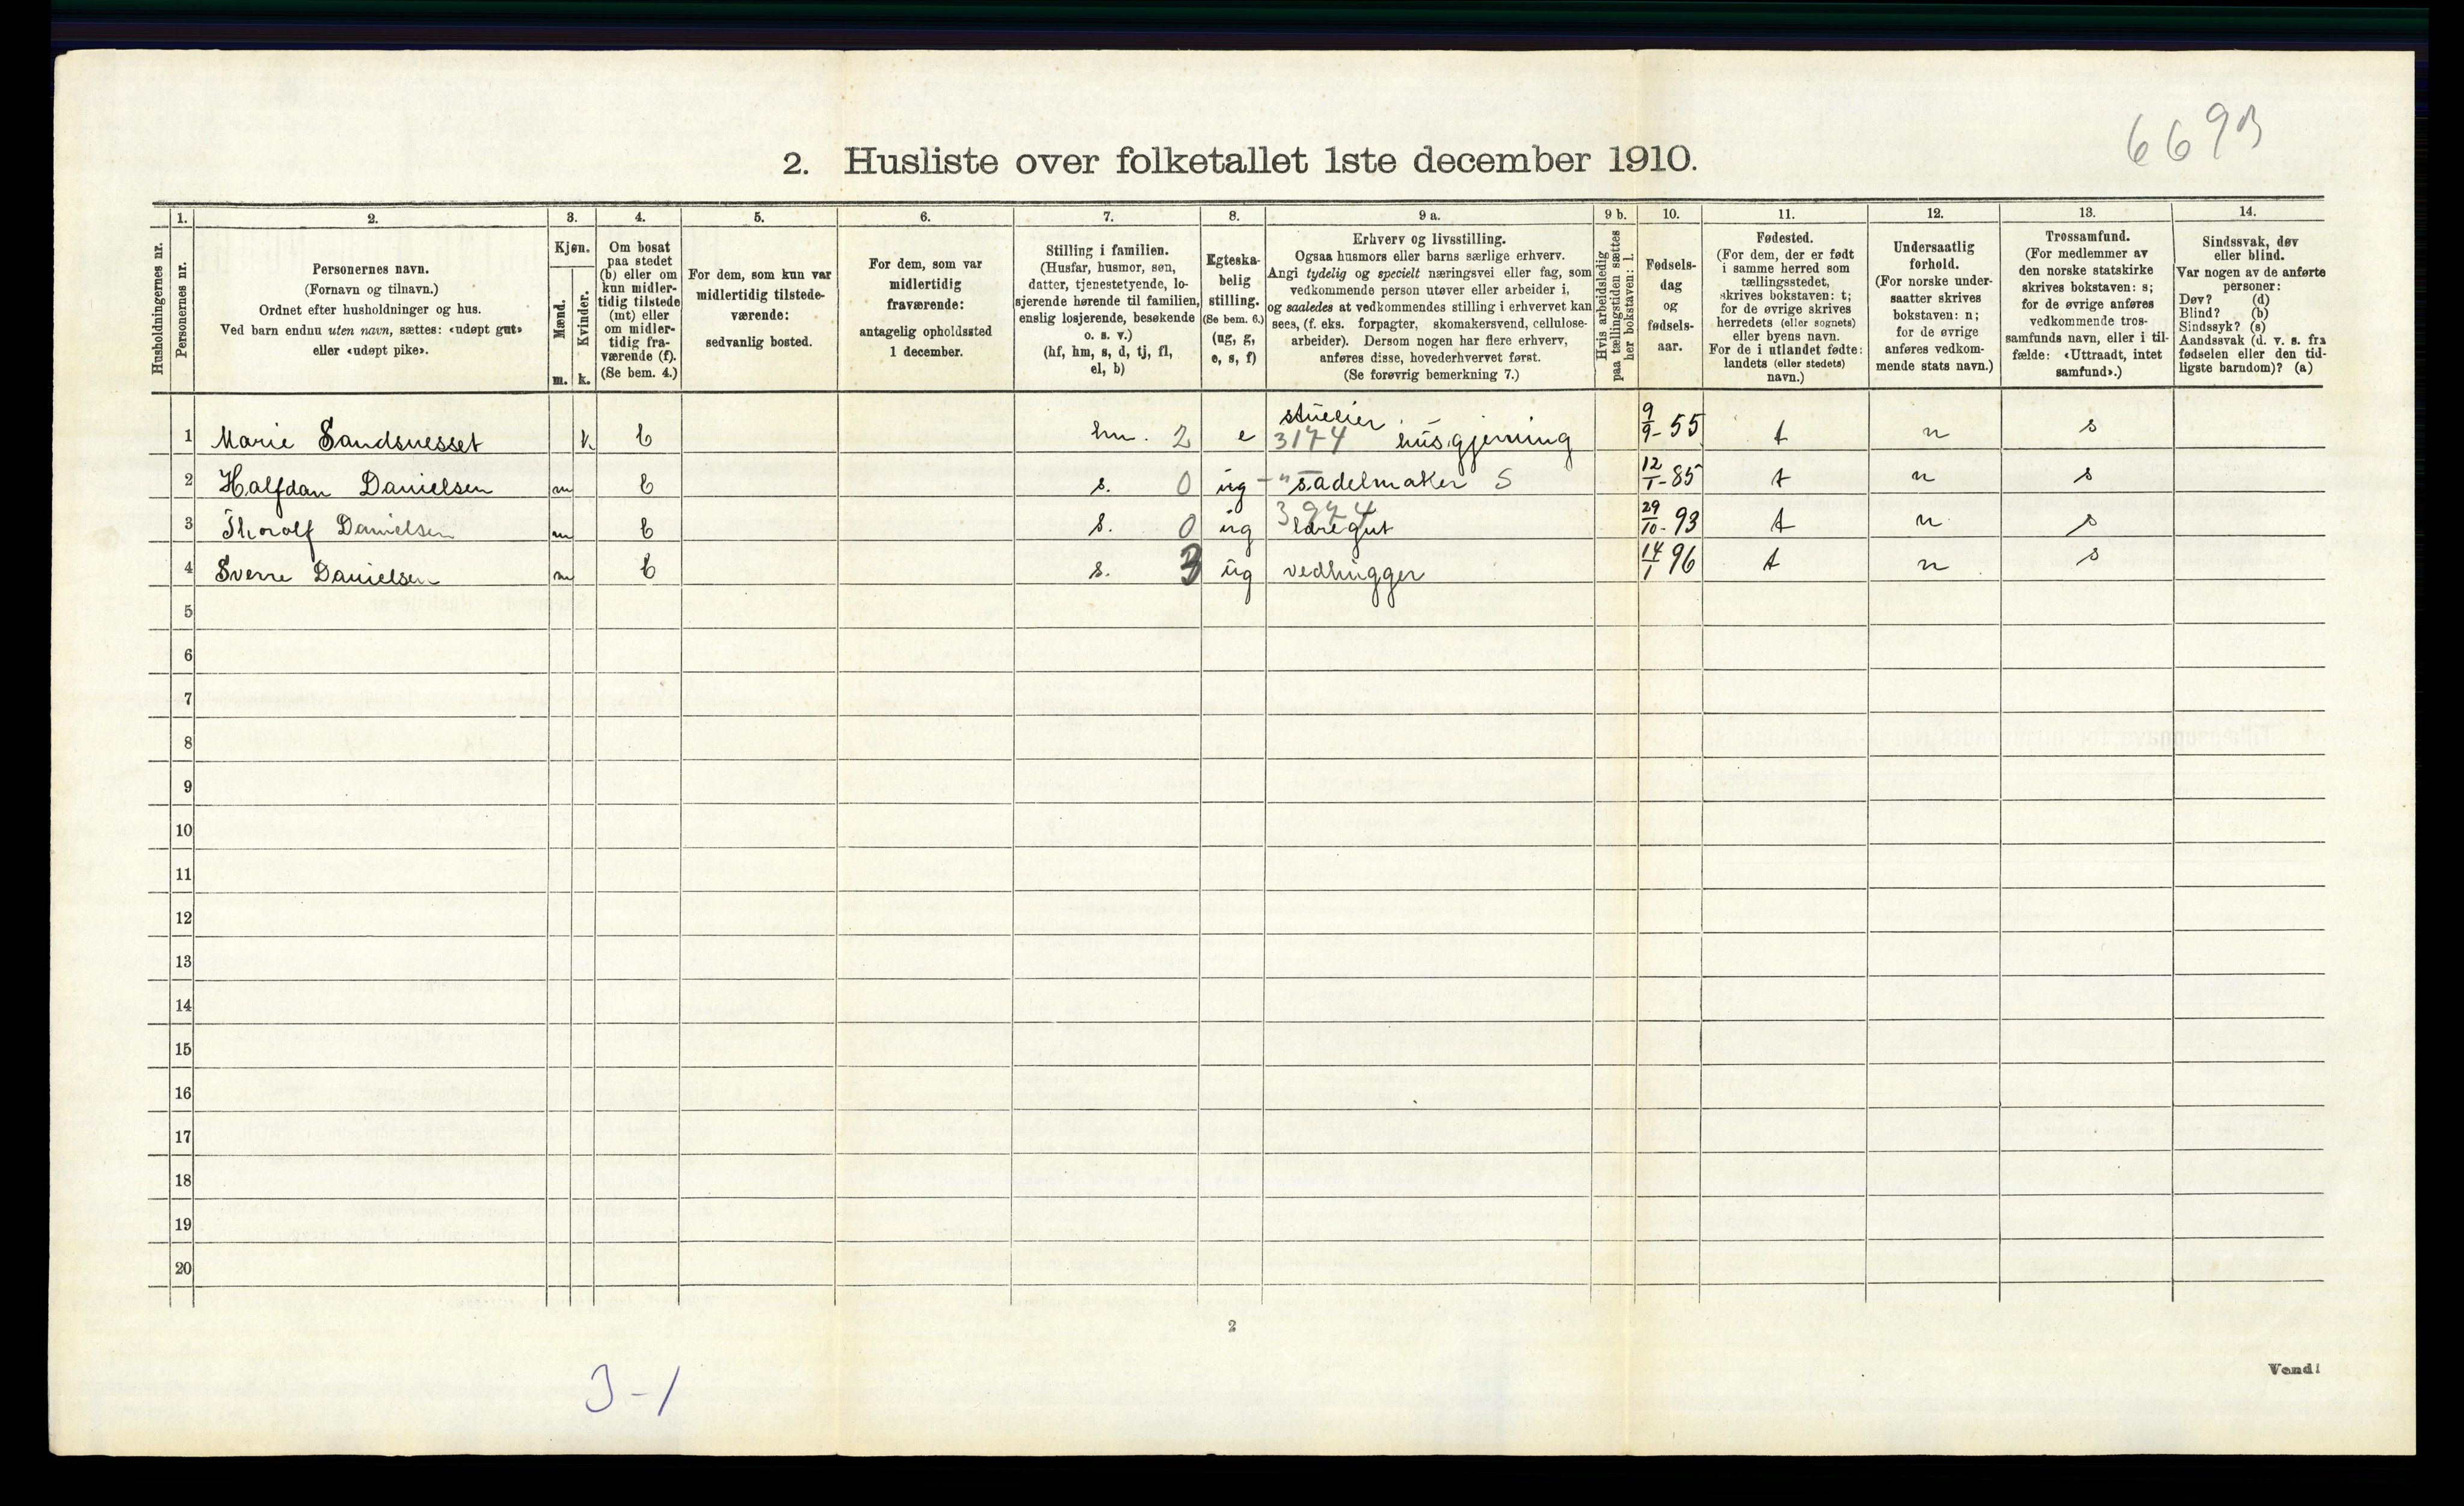 669 B
2. Husliste over folketallet 1ste december 1910.
Husholdningernes nr.
1.
Personernes nr.
2.
Personernes navn.
(Fornavn og tilnavn.)
Ordnet efter husholdninger og hus.
Ved barn endnu uten navn, sættes: «udøpt gut»
eller «udøpt pike».
3.
Kjøn.
Mænd.
m.
Kvinder.
k.
4.
Om bosat
paa stedet
(b) eller om
kun midler-
tidig tilstede
(mt) eller
om midler-
tidig fra-
værende (f).
(Se bem. 4.)
5.
For dem, som kun var
midlertidig tilstede-
værende:
sedvanlig bosted.
6.
For dem, som var
midlertidig
fraværende:
antagelig opholdssted
1 december.
7.
Stilling i familien.
(Husfar, husmor, søn,
datter, tjenestetyende, lo-
sjerende hørende til familien,
enslig losjerende, besøkende
o. s. v.)
(hf, hm, s, d, tj, fl,
el, b)
8.
Egteska-
belig
stilling.
(Se bem. 6.)
(ug, g,
e, s, f)
9 a.
Erhverv og livsstilling.
Ogsaa husmors eller barns særlige erhverv.
Angi tydelig og specielt næringsvei eller fag, som
vedkommende person utøver eller arbeider i,
og saaledes at vedkommendes stilling i erhvervet kan
sees, (f. eks. forpagter, skomakersvend, cellulose-
arbeider). Dersom nogen har flere erhverv,
anføres disse, hovederhvervet først.
(Se forøvrig bemerkning 7.)
9 b.
Hvis arbeidsledig
paa tællingstiden sættes
her bokstaven: l.
10.
Fødsels-
dag
og
fødsels-
aar.
11.
Fødested.
(For dem, der er født
i samme herred som
tællingsstedet,
skrives bokstaven: t;
for de øvrige skrives
herredets (eller sognets)
eller byens navn.
For de i utlandet fødte:
landets (eller stedets)
navn.)
12.
Undersaatlig
forhold.
(For norske under-
saatter skrives
bokstaven: n;
for de øvrige
anføres vedkom-
mende stats navn.)
13.
Trossamfund.
(For medlemmer av
den norske statskirke
skrives bokstaven: s;
for de øvrige anføres
vedkommende tros-
samfunds navn, eller i til-
fælde: «Uttraadt, intet
samfund».)
14.
Sindssvak, døv
eller blind.
Var nogen av de anførte
personer:
Døv? (d)
Blind? (b)
Sindssyk? (s)
Aandssvak (d. v. s. fra
fødselen eller den tid-
ligste barndom)? (a)
1 Marie Sandsnesset k b hm. 2 e 3174 husgjerning 9/9-55 t n s
2 Halfdan Danielsen m b s. 0 ug sadelmaker S 12/1-85 t n s
3 Thorolf Danielsen m b s. 0 ug læregut 29/10-93 t n s
4 Sverre Danielsen m b s. 3 ug vedhugger 14/1 96 t n s
5
6
7
8
9
10
11
12
13
14
15
16
17
18
19
20
2
3-1
Vend!